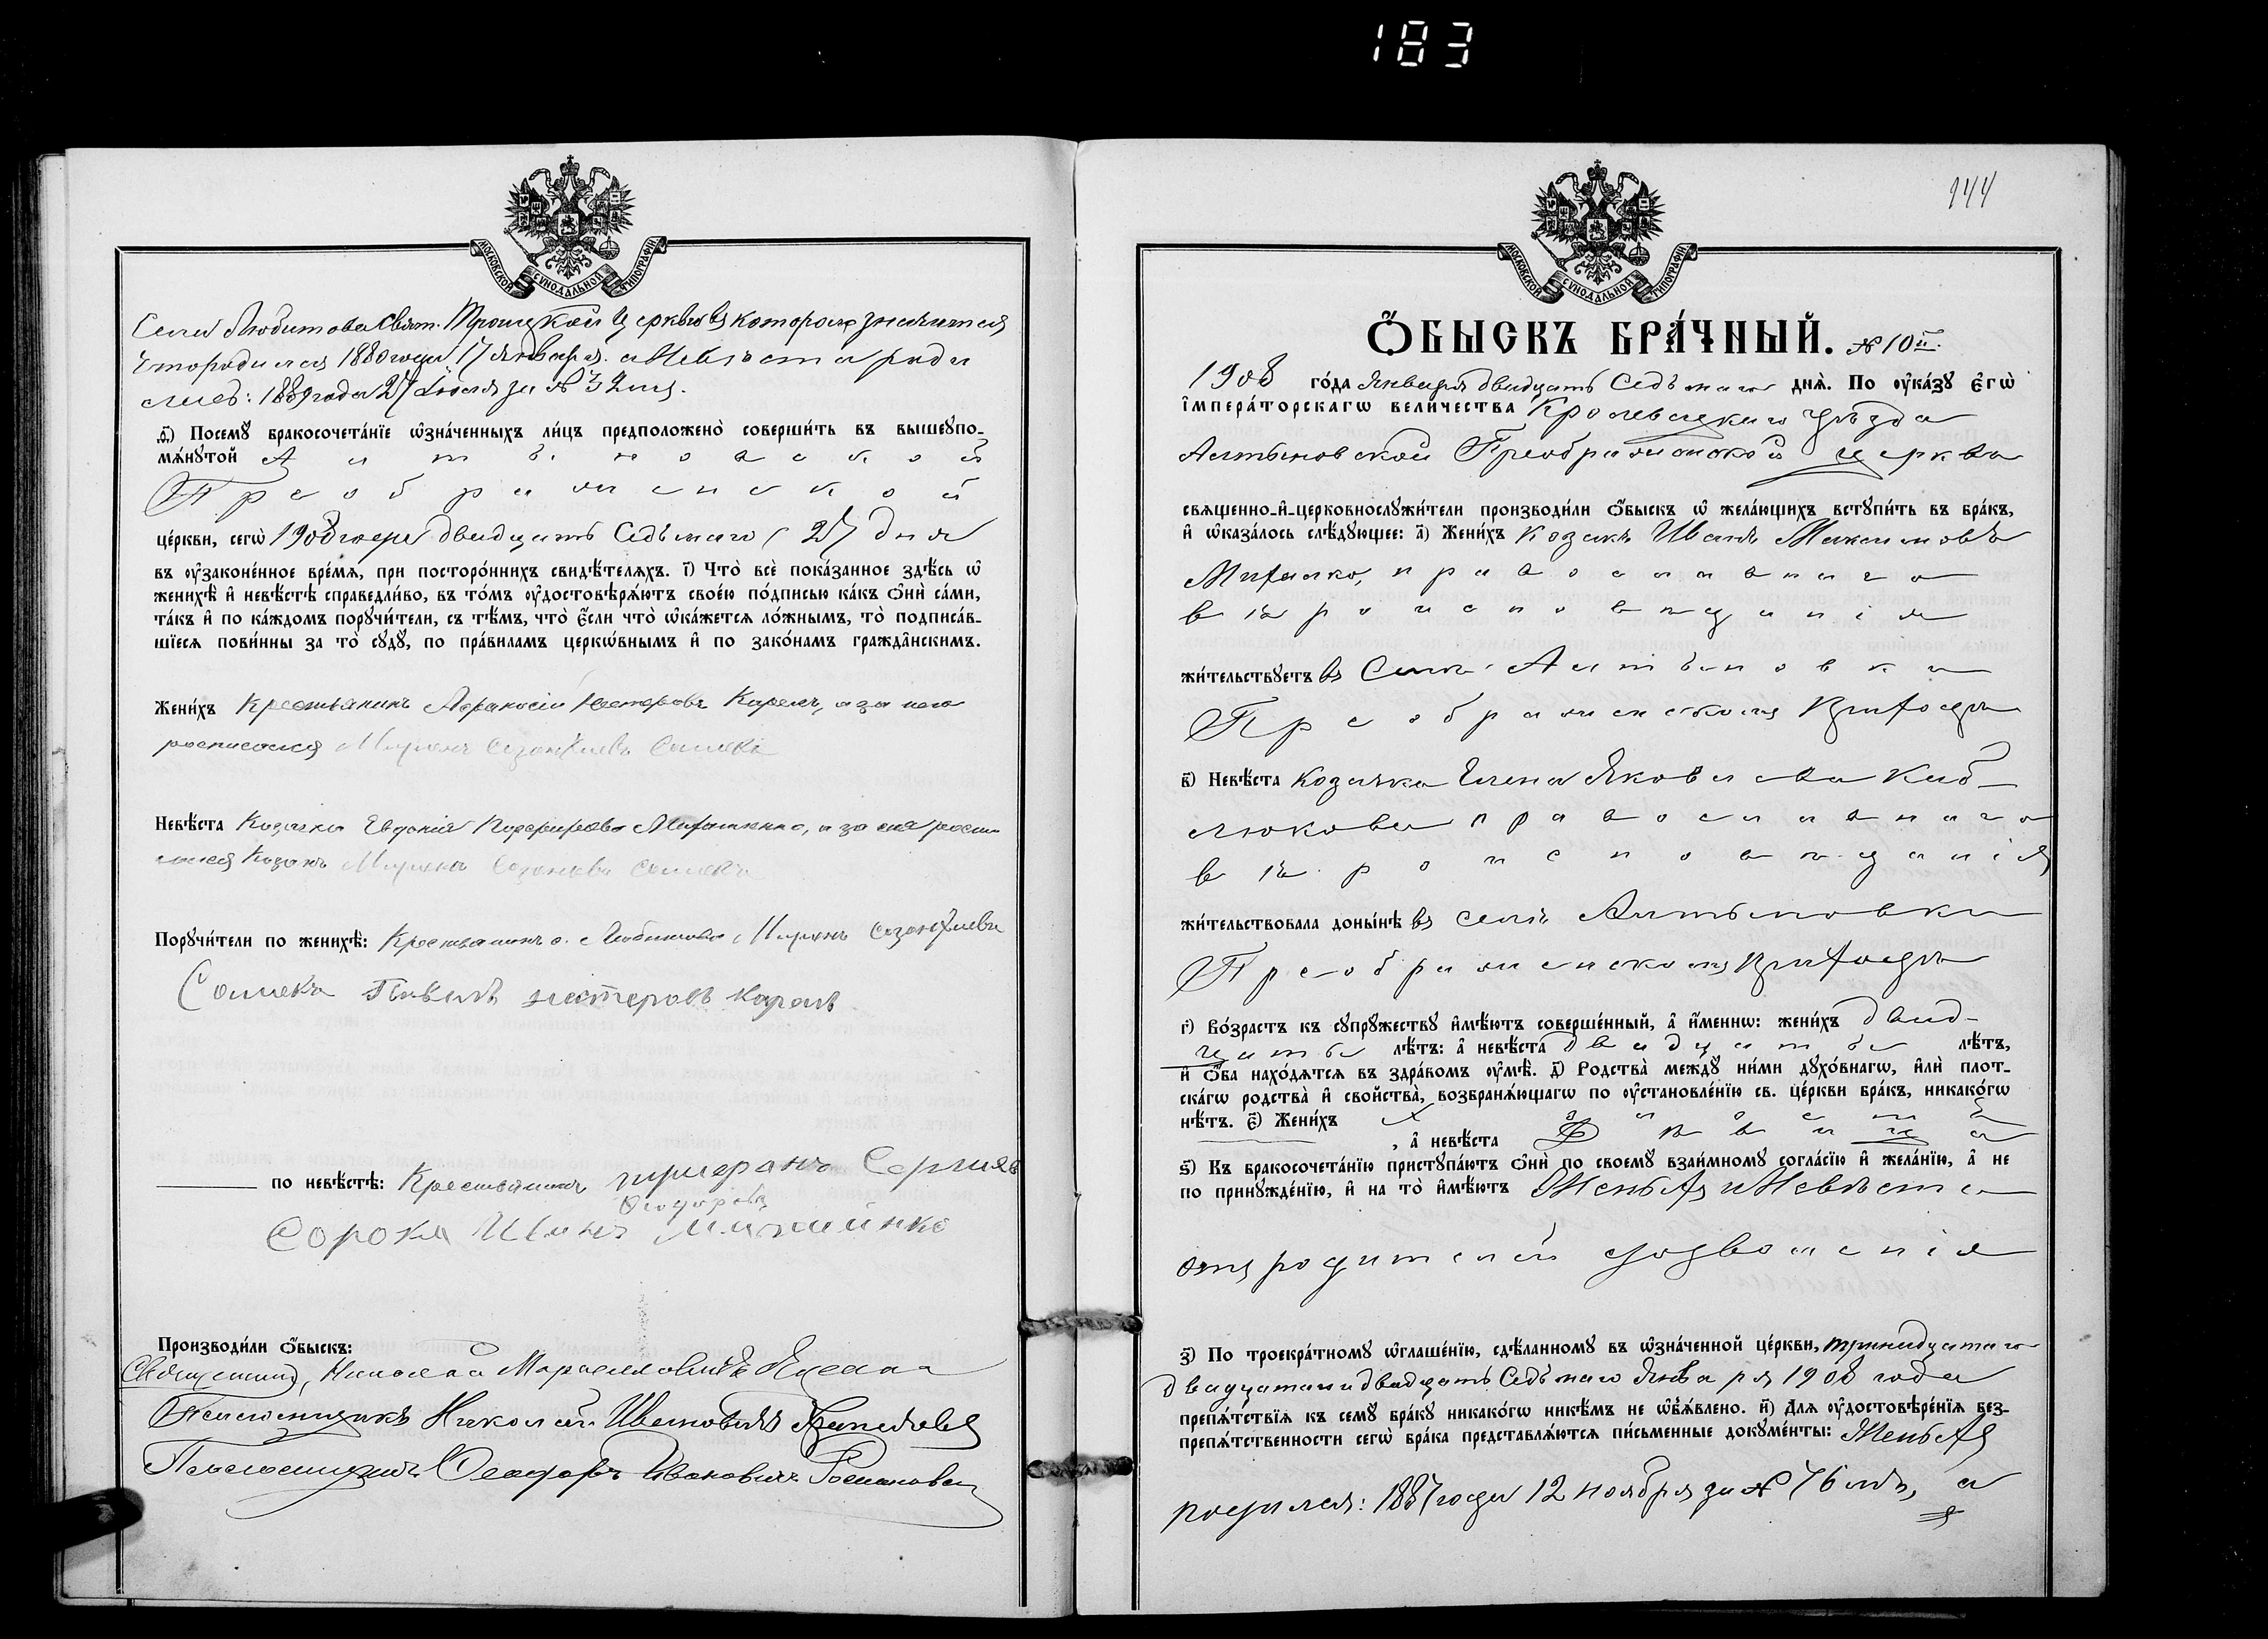 183
МОСКОВСКОЙ СѴНОДАЛЬНОЙ ТИПОГРАФІИ
Села Любитова Свят. Троицкой Церкви въ которой значится
что родился 1880 года 17 января. а Невѣста роди
лась: 1889 года 27 Іюля за № 32мъ.
д҃і) Посемꙋ бракосочета́нїе ѡ҆зна́ченныхъ ли́цъ предположено̀ соверши́ть въ вышеꙋпо-
мѧ́нꙋтой Алтыновской
Преображенской
це́ркви, сегѡ̀ 1908 года двадцать Седьмаго (27 дня
въ ᲂу҆законе́нное вре́мѧ, при посторо́ннихъ свидѣ́телѧхъ. і҃) Что̀ всѐ пока́занное здѣ́сь ѡ҆
женихѣ̀ и҆ невѣ́стѣ справедли́во, въ то́мъ ᲂу҆достовѣрѧ́ютъ свое́ю по́дписью ка́къ ѻ҆нѝ са́ми,
та́къ и҆ по ка́ждомъ порꙋчи́тели, съ тѣ́мъ, что̀ є҆́сли что̀ ѡ҆ка́жетсѧ ло́жнымъ, то̀ подписа́в-
шїесѧ пови́нны за то̀ сꙋдꙋ̀, по пра́виламъ церкѡ́внымъ и҆ по зако́намъ гражда̑нскимъ.
Жени́хъ Крестьянинъ Афанасій Нестеровъ Карель, а за него
росписался Миронъ Созонтіевъ
Невѣ́ста Козачка Евдокія а за нея роспи
сался Козакъ Миронъ
Порꙋчи́тели по женихѣ̀: Крестьянинъ с. Любитова Миронъ Созонтіевъ
Павелъ нестеровъ Карель
по невѣ́стѣ: Крестьянинъ Сергіевъ
Ѳедоровъ
Сорока Иванъ
Производи́ли ѻ҆́быскъ:
Священникъ, Николай
Псаломщикъ Николай Ивановичъ
Псаломщикъ Ѳеодоръ Ивановичъ
144
МОСКОВСКОЙ СѴНОДАЛЬНОЙ ТИПОГРАФІИ
Ѻ҆́БЫСКЪ БРА́ЧНЫЙ. № 10й.
1908 го́да Января двадцать Седьмаго днѧ̀. По ᲂу҆ка́зꙋ є҆гѡ̀
і҆мпера́торскагѡ вели́чества Кролевецкаго уѣзда
Алтыновской Преображенской церкви
свѧщенно-и҆-церковнослꙋжи́тели производи́ли ѻ҆́быскъ ѡ҆ жела́ющихъ встꙋпи́ть въ бра́къ,
и҆ ѡ҆каза́лось слѣ́дꙋющее: а҃) Жени́хъ Козакъ Иванъ Максимовъ
православнаго
вѣроисповѣданія
жи́тельствꙋетъ въ Селѣ Алтыновкѣ
Преображенскомъ приходѣ
в҃) Невѣ́ста Козачка Елена Яковлева Каб-
люкова православнаго
вѣроисповѣданія
жи́тельствовала доны́нѣ въ селѣ Алтыновкѣ
Преображенскомъ приходѣ
г҃) Во́зрастъ къ сꙋпрꙋ́жествꙋ и҆мѣ́ютъ соверше́нный, а҆ и҆́меннѡ: жени́хъ двад-
цать лѣ́тъ: а҆ невѣ́ста двадцать лѣ́тъ,
и҆ ѻ҆́ба нахо́дѧтсѧ въ здра́вомъ ᲂу҆мѣ̀. д҃) Родства̀ междꙋ̀ ни́ми дꙋхо́внагѡ, и҆лѝ плот-
ска́гѡ родства̀ и҆ свойства̀, возбранѧ́ющагѡ по ᲂу҆становле́нїю св. це́ркви бра́къ, никако́гѡ
нѣ́тъ. є҃) Жени́хъ
, а҆ невѣ́ста Дѣвица
ѕ҃) Къ бракосочета́нїю пристꙋпа́ютъ ѻ҆нѝ по своемꙋ̀ взаи́мномꙋ согла́сїю и҆ жела́нїю, а҆ не
по принꙋжде́нїю, и҆ на то̀ и҆мѣ́ютъ Женихъ и Невѣста
отъ родителей дозволенія
з҃) По троекра́тномꙋ ѡ҆глаше́нїю, сдѣ́ланномꙋ въ ѡ҆зна́ченной це́ркви, тринадцатаго
двадцатаго и двадцать Седьмаго Января 1908 года
препѧ́тствїѧ къ семꙋ̀ бра́кꙋ никако́гѡ никѣ́мъ не ѡ҆б̾ѧ́влено. и҃) Длѧ ᲂу҆достовѣре́нїѧ без-
препѧ́тственности сегѡ̀ бра́ка представлѧ́ютсѧ пи́сьменные докꙋме́нты: Женихъ
родился: 1887 года 12 ноября за № 76мъ, а